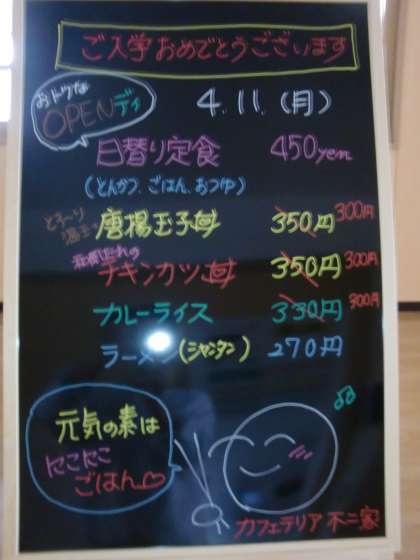 ご入学おめでとうございます
おトクな
OPENデイ
4.11.(月)
日替り定食 450yen
(とんかつ、ごはん、おつゆ)
とろ〜り
温玉
唐揚玉子丼 350円 300円
チキンカツ丼 350円 300円
カレーライス 330円 300円
ラーメン(シャンタン) 270円
元気の素は
にこにこ
ごはん♡
カフェテリア 不二家